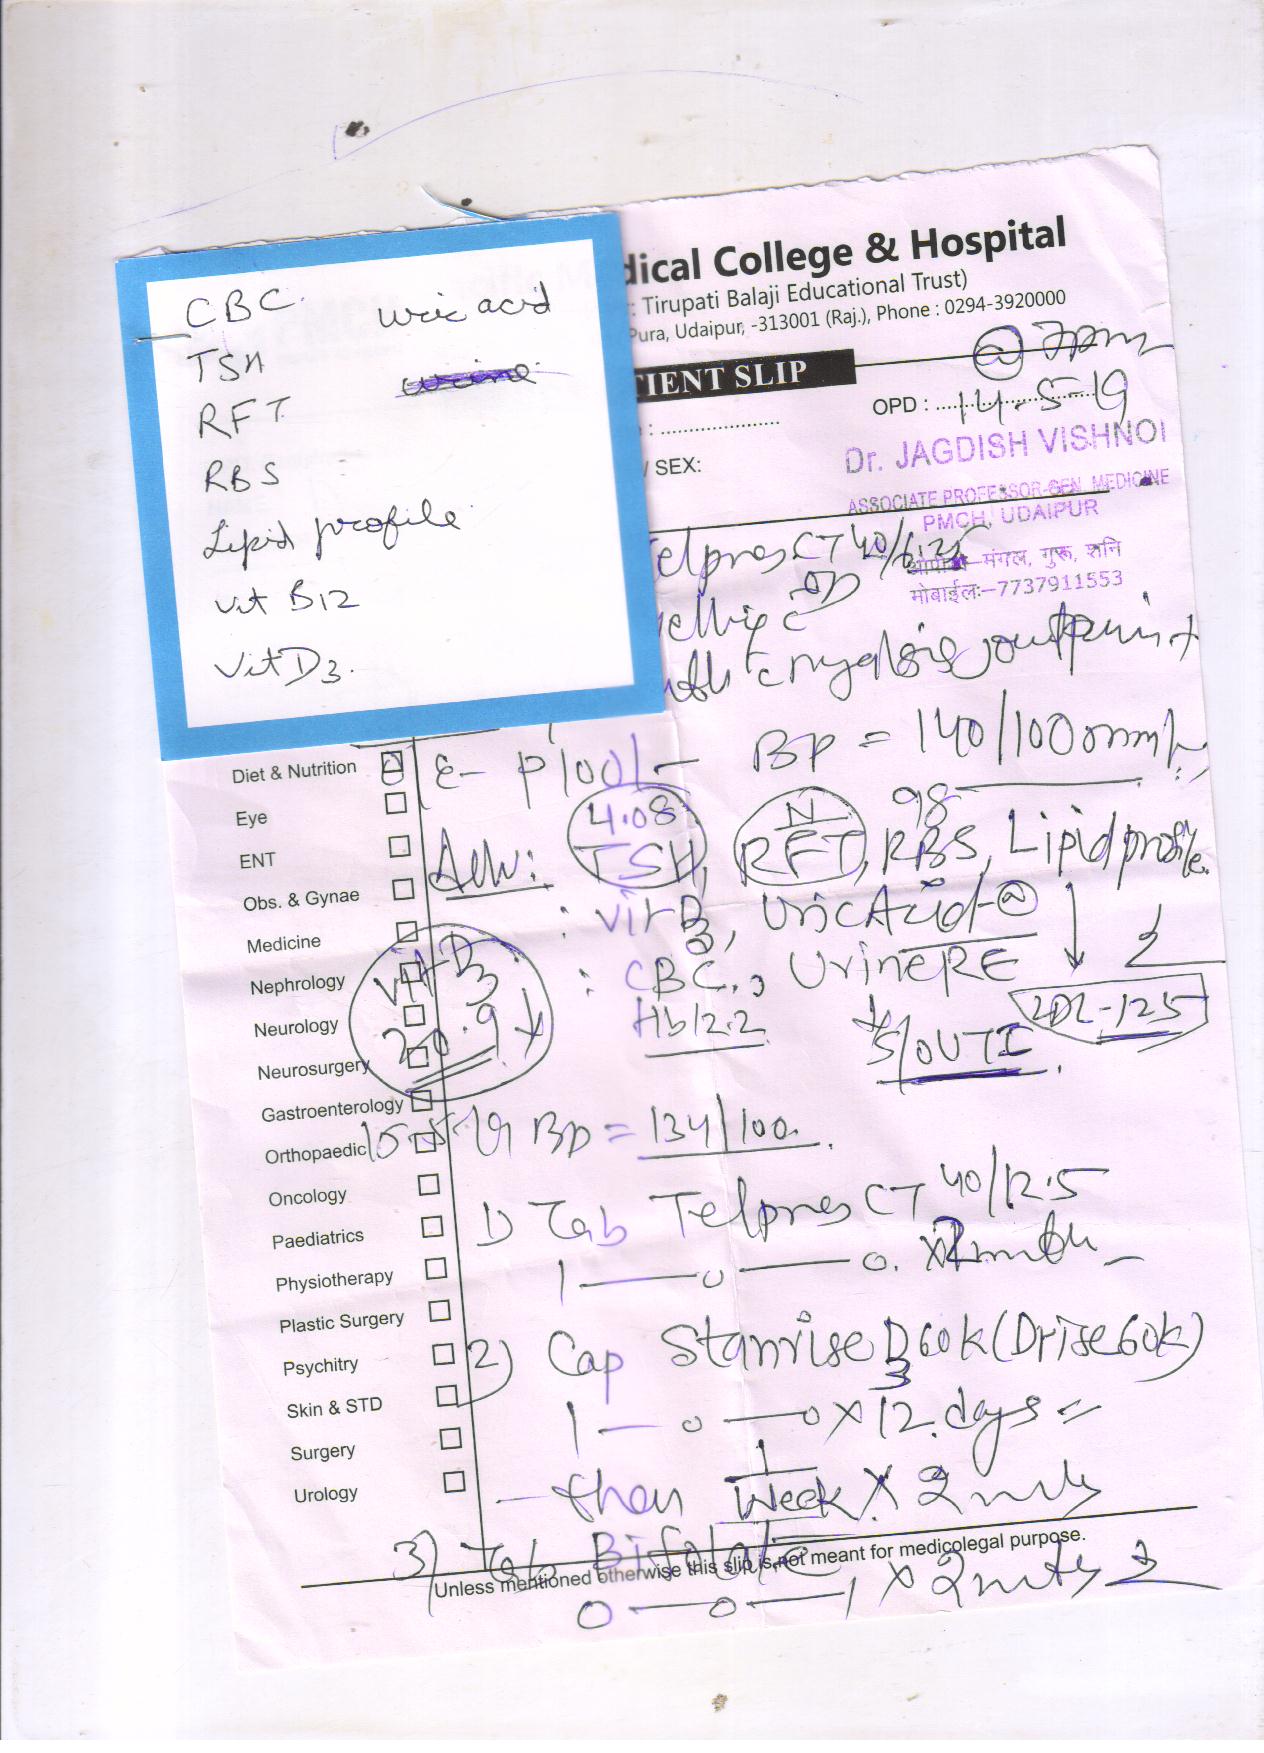 CBC
uric acid
TSH
RFT
RBS
Lipid profile
vit B12
Vit D3.
dical College & Hospital
: Tirupati Balaji Educational Trust)
Pura, Udaipur, -313001 (Raj.), Phone : 0294-3920000
TIENT SLIP
@ 7pm
OPD : 14.5-19
Dr. JAGDISH VISHNOI
/ SEX:
ASSOCIATE PROFESSOR-GEN. MEDICINE
PMCH, UDAIPUR
मंगल, गुरू, शनि
मोबाईलः–7737911553
Telpres CT 40/6.25
OD
BP = 140/100 mmHg
P 100/-
Diet & Nutrition
Eye
ENT
Obs. & Gynae
Medicine
Nephrology
Neurology
Neurosurgery
Gastroenterology
Orthopaedic
Oncology
Paediatrics
Physiotherapy
Plastic Surgery
Psychitry
Skin & STD
Surgery
Urology
4.08 N 98
Adv: TSH, RFT, RBS, Lipid profile
: vit D3, Uric Acid - @
: CBC., Urine RE
Hb 12.2
LDL - 125
S/O UTI
vit D3
20.9 ↓
15-5-19 BP = 134/100.
1) Tab Telpres CT 40/12.5
1 — 0 — 0. x 2 mth
2) Cap Stanrise D3 60k (Drise 60k)
1 — 0 — 0 x 12 days
then 1/Week x 2 mths
3) Tab Bifolate
Unless mentioned otherwise this slip is,not meant for medicolegal purpose.
0 — 0 — 1 x 2 mths